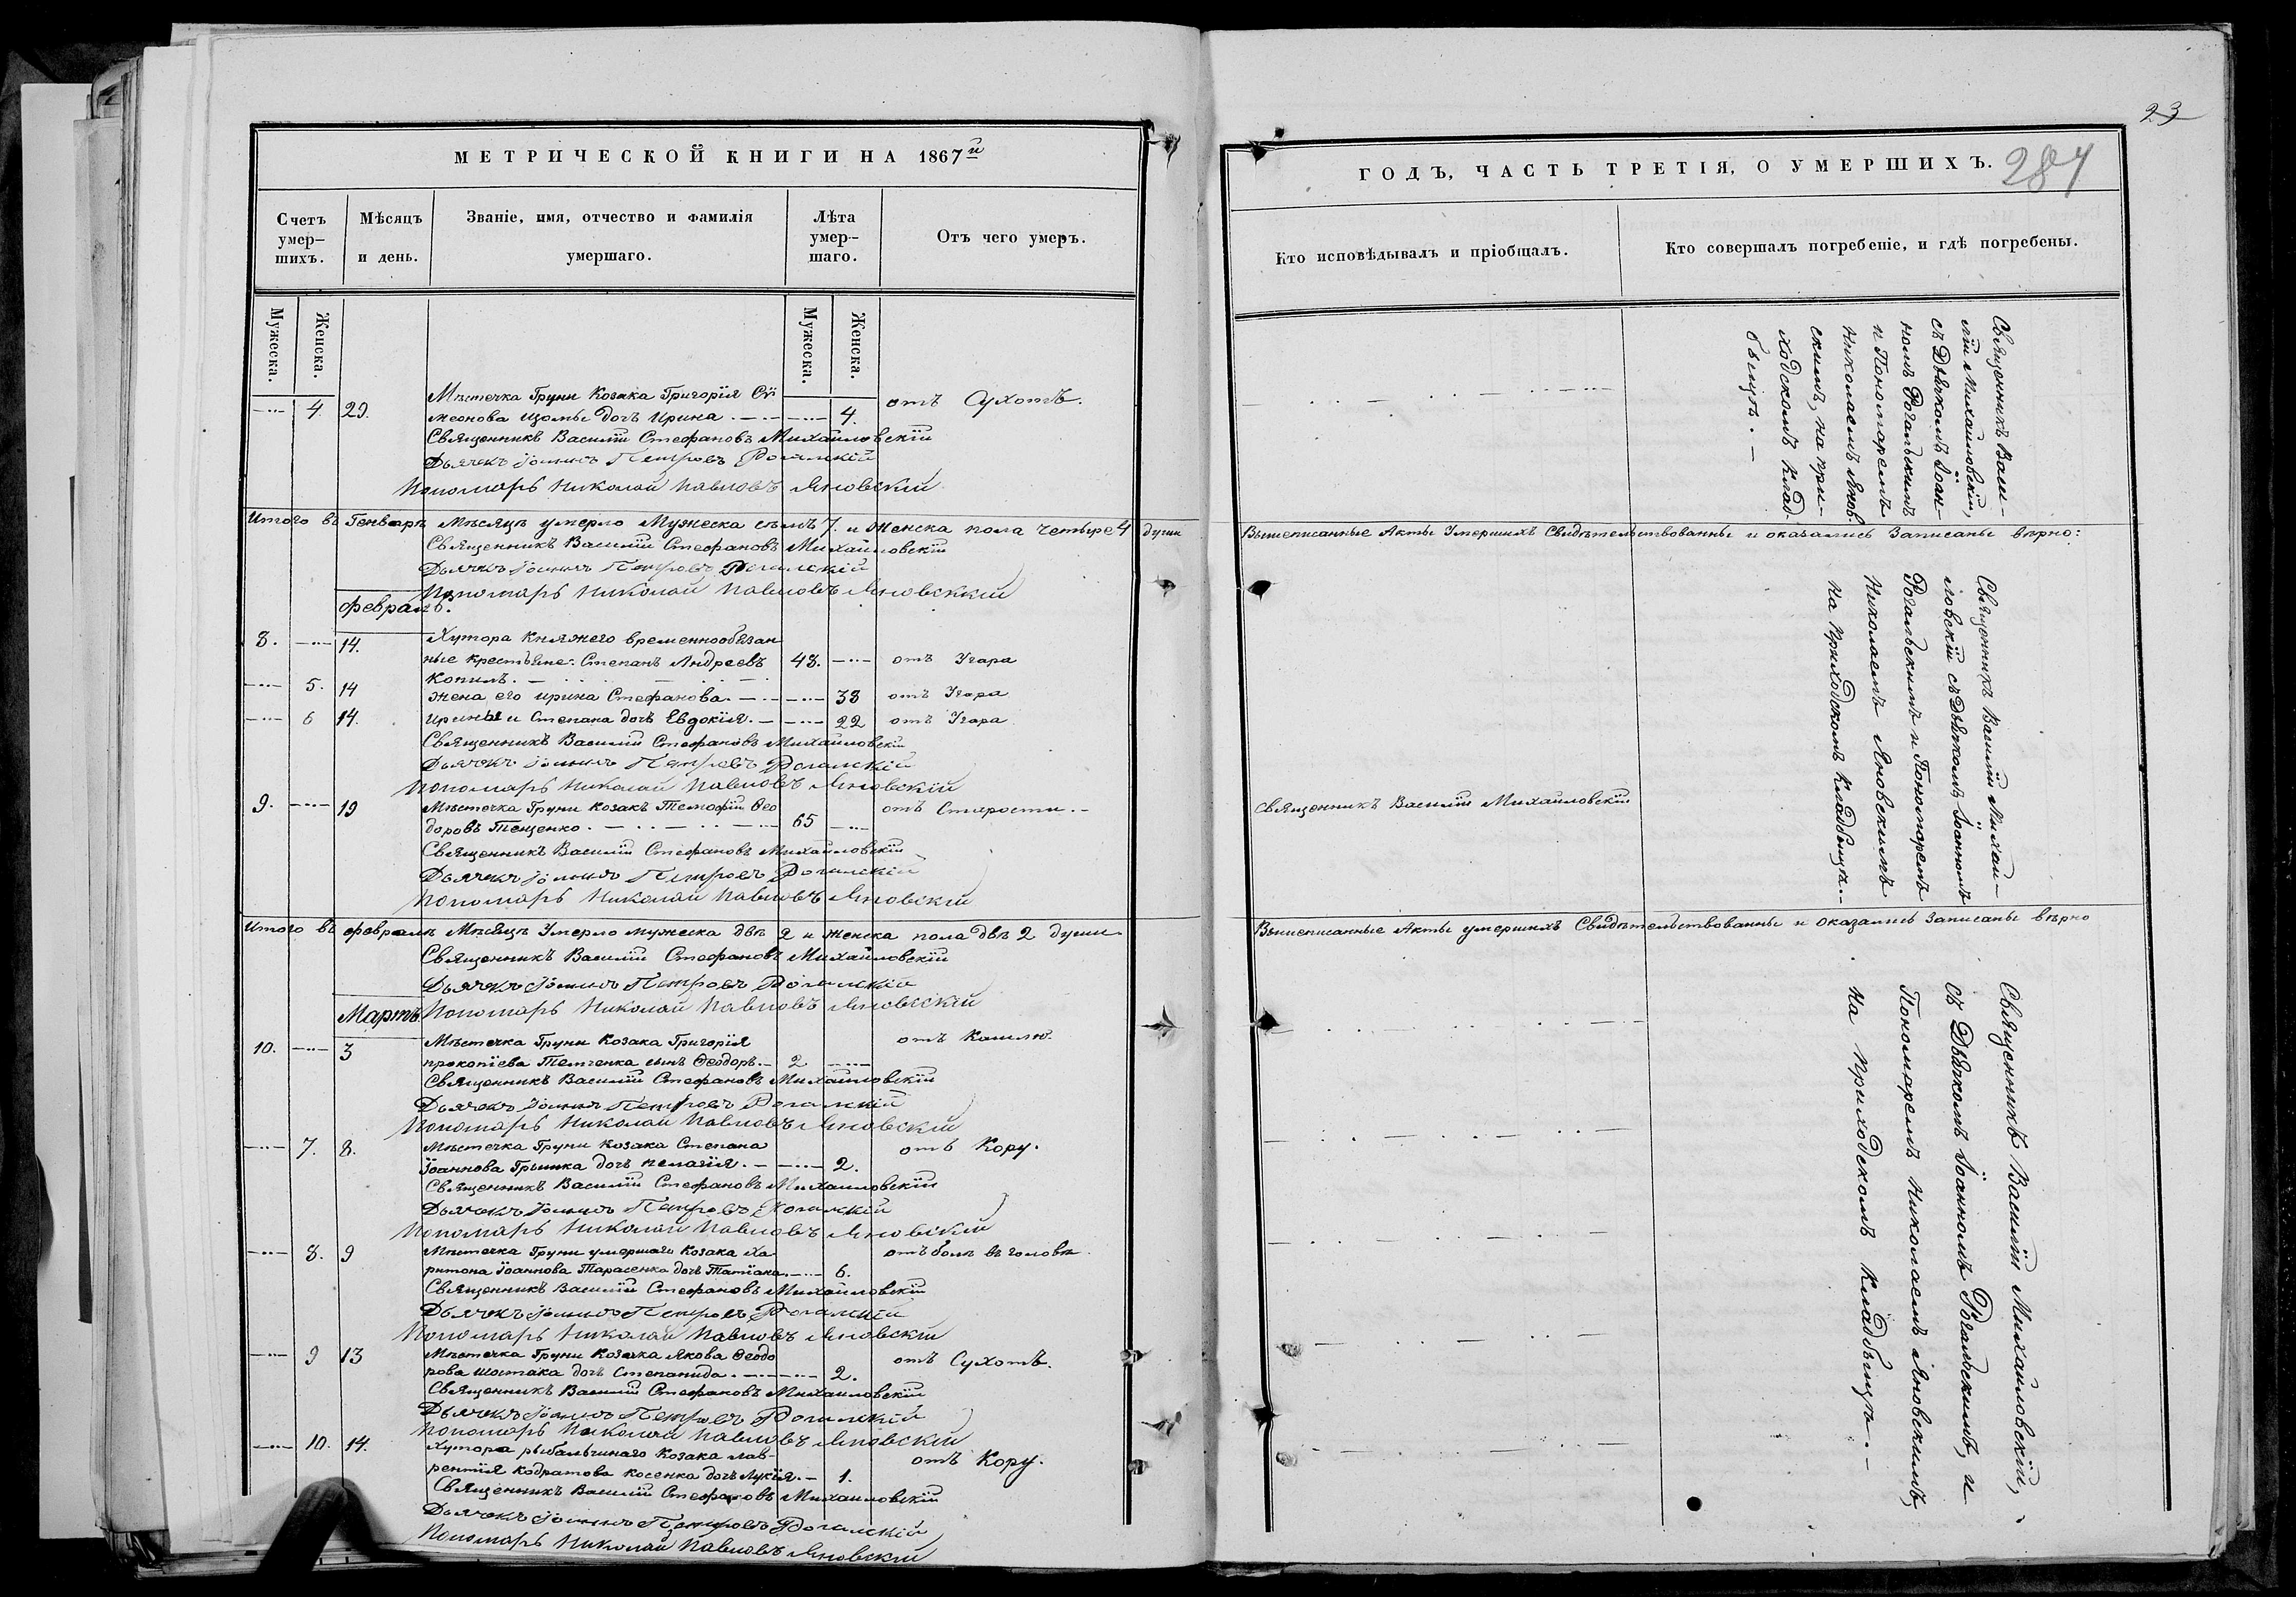 МЕТРИЧЕСКОЙ КНИГИ НА 1867й
Счетъ умер-шихъ.
Мѣсяцъ и день.
Званіе, имя, отчество и фамилія умершаго.
Лѣта умер-шаго.
Отъ чего умеръ.
Мужеска.
Женска.
Мужеска.
Женска.
Мѣстечка Груни Козака Григорія Сѵ
4. 29. меонова дочь Ирина. 4. отъ Сухотъ.
Священникъ Василій Стефановъ Михайловскій
Дьячекъ Іоаннъ Петровъ Рогальскій
Пономарь Николай Павловъ Яновскій
Итого въ Генварѣ Мѣсяцѣ умерло Мужеска семъ 7. и Женска пола четыре 4 души
Священникъ Василій Стефановъ Михайловскій
Дьячекъ Іоаннъ Петровъ Рогальскій
Пономарь Николай Павловъ Яновскій
февраль.
8. 14. Хутора Княжего временнообязан
ные крестьяне: Степанъ Андреевъ 48. отъ Угара
Копилъ.
5. 14 жена его Ирина Стефанова. 38 отъ Угара
6 14. Ирины и Степана дочь Евдокія. 22 отъ Угара
Священникъ Василій Стефановъ Михайловскій
Дьячекъ Іоаннъ Петровъ Рогальскій
Пономарь Николай Павловъ Яновскій
9. 19 Мѣстечка Груни козакъ Тимофій Ѳео отъ Старости.
доровъ Тещенко. 65
Священникъ Василій Стефановъ Михайловскій
Дьячекъ Іоаннъ Петровъ Рогальскій
Пономарь Николай Павловъ Яновскій
Итого въ февралѣ Мѣсяцѣ Умерло мужеска двѣ 2 и женска пола двѣ 2 души
Священникъ Василій Стефановъ Михайловскій
Дьячекъ Іоаннъ Петровъ Рогальскій
Мартъ. Пономарь Николай Павловъ Яновскій
10. 3 Мѣстечка Груни Козака Григорія отъ Кашлю.
прокопіева сынъ Ѳеодоръ. 2
Священникъ Василій Стефановъ Михайловскій
Дьячекъ Іоаннъ Петровъ Рогальскій
Пономарь Николай Павловъ Яновскій
7. 8. Мѣстечка Груни Козака Степана отъ Кору.
Іоаннова Гринка дочь пелагія. 2.
Священникъ Василій Стефановъ Михайловскій
Дьячекъ Іоаннъ Петровъ Рогальскій
Пономарь Николай Павловъ Яновскій
8. 9 Мѣстечка Груни умершаго Козака Ха отъ боли въ головѣ
ритона Іоаннова Тарасенка дочь Татіана. 6.
Священникъ Василій Стефановъ Михайловскій
Дьячекъ Іоаннъ Петровъ Рогальскій
Пономарь Николай Павловъ Яновскій
9 13 Мѣстечка Груни Козака Якова Ѳеодо отъ Сухотъ.
рова Шостака дочь Степанида. 2.
Священникъ Василій Стефановъ Михайловскій
Дьячекъ Іоаннъ Петровъ Рогальскій
Пономарь Николай Павловъ Яновскій
10. 14. Хутора рыбальчинаго Козака лав- отъ Кору.
рентія Кодратова Косенка дочь Лукія. 1.
Священникъ Василій Стефановъ Михайловскій
Дьячекъ Іоаннъ Петровъ Рогальскій
Пономарь Николай Павловъ Яновскій
23
284
ГОДЪ, ЧАСТЬ ТРЕТІЯ, О УМЕРШИХЪ.
Кто исповѣдывалъ и пріобщалъ.
Кто совершалъ погребеніе, и гдѣ погребены.
Священникъ Васи-
лій Михайловскій,
съ Дьячкомъ Іоан-
номъ Рогальскимъ
и Пономаремъ
Николаемъ Янов
скимъ, на при-
ходскомъ клад-
быщѣ.
Вышеписанные Акты Умершихъ Свидѣтельствованны и оказались Записаны вѣрно:
Священникъ Василій Михай-
ловскій съ Дьячкомъ Іоанномъ
Рогальскимъ и Пономаремъ
Николаемъ Яновскимъ
на приходскомъ кладбыщѣ.
Священникъ Василій Михайловскій
Вышеписанные Акты умершихъ Свидѣтельствованны и оказались Записаны вѣрно
Священникъ Василій Михайловскій,
съ Дьячкомъ Іоанномъ Рогальскимъ, и
Пономаремъ Николаемъ Яновскимъ,
на приходскомъ кладбыщѣ.